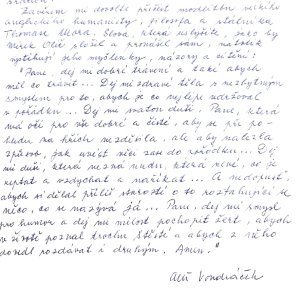 Závěrem mi dovolte přečíst modlitbu velkého
anglického humanisty, filosofa a státníka
Thomase Mora. Slova, která uslyšíte, jako by
Mirek Olič složil a pronášel sám, natolik
vystihují jeho myšlenky, názory a cítění:
"Pane, dej mi dobré trávení a také abych
měl co trávit... Dej mi zdraví těla s nezbytným
smyslem pro to, abych je co nejlépe udržoval
v pořádku... Dej mi svatou duši, Pane, která
má oči pro vše dobré a čisté, aby se při po-
hledu na hřích neděsila, ale aby nalezla
způsob, jak uvést věci zas do pořádku... Dej
mi duši, která nezná nudu, která neví, co je
reptat a vzdychat a naříkat... A nedopusť,
abych si dělal příliš starostí o to roztahující se
něco, co se nazývá já... Pane, dej mi smysl
pro humor a dej mi milost pochopit žert, abych
v životě poznal trochu štěstí a abych z něho
dovedl rozdávat i druhým. Amen."
Aleš Vondráček